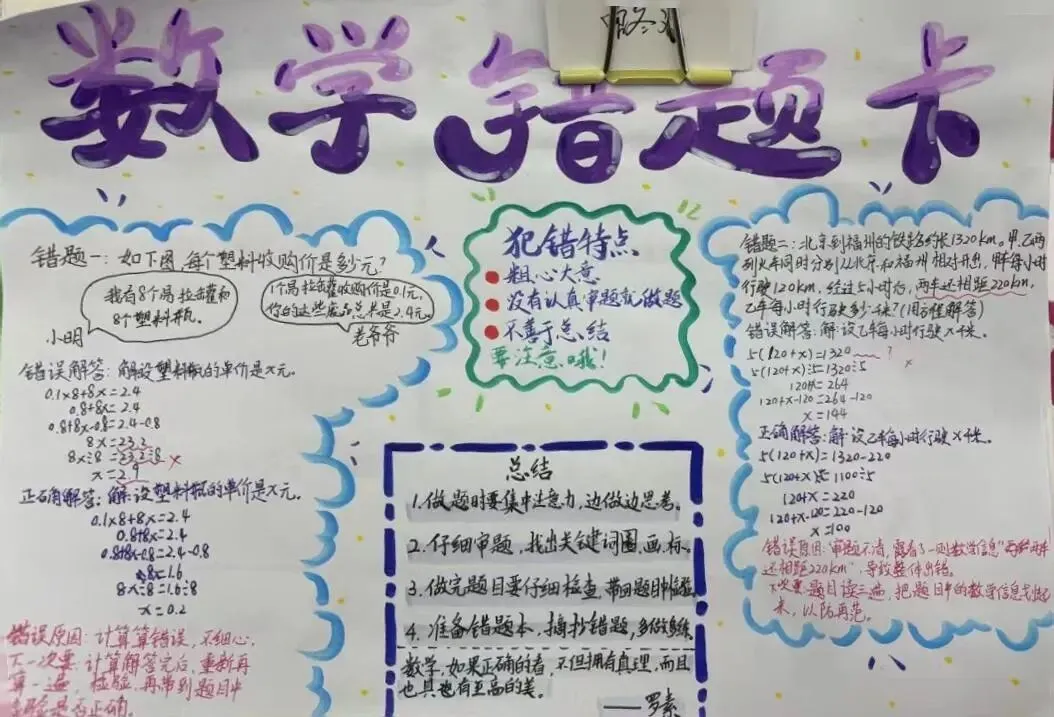 数学错题卡
错题一:如下图,每个塑料收购价是多少元?
我有8个易拉罐和
8个塑料瓶。
小明
1个易拉罐收购价是0.1元,
你的这些废品总共是2.4元。
老爷爷
错误解答:解设塑料瓶的单价是x元。
0.1×8+8x=2.4
0.8+8x=2.4
0.8+8x-0.8=2.4-0.8
8x=23.2
8x÷8=23.2÷8
x=2.9
正确解答:解:设塑料瓶的单价是x元。
0.1×8+8x=2.4
0.8+8x=2.4
0.8+8x-0.8=2.4-0.8
8x=1.6
8x÷8=1.6÷8
x=0.2
错误原因:计算算错误,不细心。
下一次要:计算解答完后,重新再
算一遍,检验,再带到题目中
是否正确。
犯错特点
粗心大意
没有认真审题就做题
不善于总结
要注意哦!
总结
1.做题时要集中注意力,边做边思考。
2.仔细审题,找出关键词圈,画,标。
3.做完题目要仔细检查,带回题目中检验。
4.准备错题本,摘抄错题,多做多练。
数学,如果正确的看,不但拥有真理,而且
也具有至高的美。
——罗素
错题二:北京到福州的铁路约长1320km。甲、乙两
列火车同时分别从北京和福州相对开出,甲车每小时
行驶120km,经过5小时后,两车还相距220km,
乙车每小时行驶多少千米?(用方程解答)
错误解答:解:设乙车每小时行驶x千米。
5(120+x)=1320 ?
5(120+x)÷5=1320÷5
120+x=264
120+x-120=264-120
x=144
正确解答:解:设乙车每小时行驶x千米。
5(120+x)=1320-220
5(120+x)÷5=1100÷5
120+x=220
120+x-120=220-120
x=100
错误原因:审题不清,露看了一则数学信息"两车
还相距220km",导致整体出错。
下次要:题目读三遍,把题目中的数学信息找出
来,以防再范。